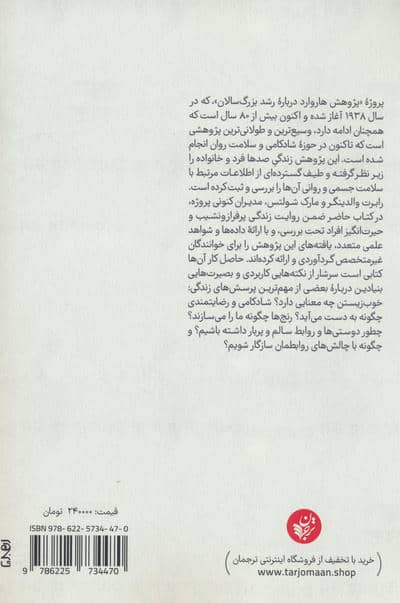 پروژهٔ «پژوهش هاروارد دربارهٔ رشد بزرگ‌سالان»، که در
سال ۱۹۳۸ آغاز شده و اکنون بیش از ۸۰ سال است که
همچنان ادامه دارد، وسیع‌ترین و طولانی‌ترین پژوهشی
است که تاکنون در حوزهٔ شادکامی و سلامت روان انجام
شده است. این پژوهش زندگیِ صدها فرد و خانواده را
زیر نظر گرفته و طیف گسترده‌ای از اطلاعات مرتبط با
سلامت جسمی و روانی آن‌ها را بررسی و ثبت کرده است.
رابرت والدینگر و مارک شولتس، مدیران کنونی پروژه،
در کتاب حاضر ضمن روایت زندگی پرفرازونشیب و
حیرت‌انگیز افراد تحت بررسی، و با ارائهٔ داده‌ها و شواهد
علمی متعدد، یافته‌های این پژوهش را برای خوانندگان
غیرمتخصص گردآوری و ارائه کرده‌اند. حاصل کار آن‌ها
کتابی است سرشار از نکته‌هایی کاربردی و بصیرت‌هایی
بنیادین دربارهٔ بعضی از مهم‌ترین پرسش‌های زندگی:
خوب‌زیستن چه معنایی دارد؟ شادکامی و رضایتمندی
چگونه به دست می‌آید؟ رنج‌ها چگونه ما را می‌سازند؟
چطور دوستی‌ها و روابط سالم و پربار داشته باشیم؟ و
چگونه با چالش‌های روابطمان سازگار شویم؟
قیمت: ۲۴۰۰۰۰ تومان
ISBN 978-622-5734-47-0
9 786225 734470
ترجمان
( خرید با تخفیف از فروشگاه اینترنتی ترجمان
www.tarjomaan.shop )